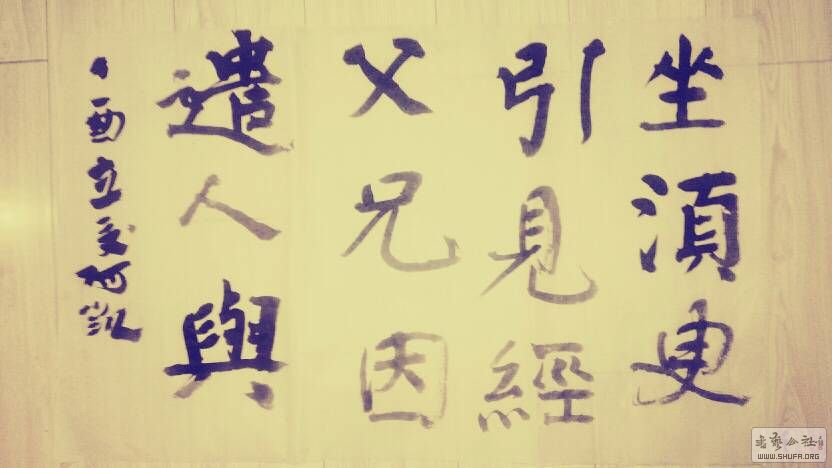 坐湏叟
引見經
父兄因
遣人與
丁酉立夏阿凱
書藝公社
WWW.SHUFA.ORG